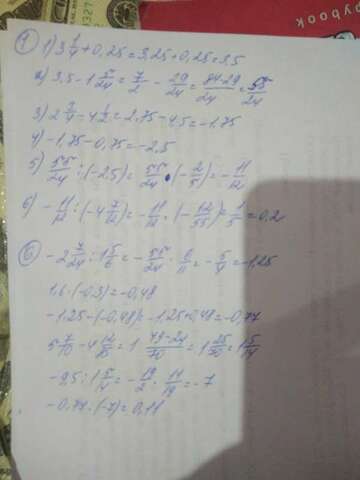 playbook
7
1) 3 1/4 + 0,25 = 3,25 + 0,25 = 3,5
2) 3,5 - 1 5/24 = 7/2 - 29/24 = 84-29/24 = 55/24
3) 2 3/4 - 4 1/2 = 2,75 - 4,5 = -1,75
4) -1,75 - 0,75 = -2,5
5) 55/24 : (-2,5) = 55/24 · (-2/5) = -11/12
6) -11/12 : (-4 7/12) = -11/12 · (-12/55) = 1/5 = 0,2
6
-2 7/24 : 1 5/6 = -55/24 · 6/11 = -5/4 = -1,25
1,6 · (-0,3) = -0,48
-1,25 - (-0,48) = -1,25 + 0,48 = -0,77
5 7/10 - 4 12/35 = 1 49-24/70 = 1 25/70 = 1 5/14
-9,5 : 1 5/14 = -19/2 · 14/19 = -7
-0,77 : (-7) = 0,11